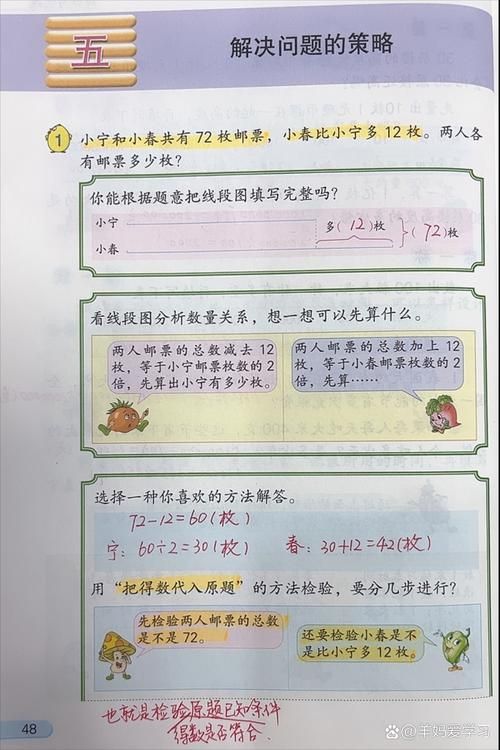 五
解决问题的策略
1 小宁和小春共有 72 枚邮票，小春比小宁多 12 枚。两人各
有邮票多少枚？
你能根据题意把线段图填写完整吗？
小宁
多(12)枚
(72)枚
小春
看线段图分析数量关系，想一想可以先算什么。
两人邮票的总数减去 12
枚，等于小宁邮票枚数的 2
倍，先算出小宁有多少枚。
两人邮票的总数加上 12
枚，等于小春邮票枚数的 2
倍，先算……
选择一种你喜欢的方法解答。
72-12=60(枚)
宁：60÷2=30(枚) 春：30+12=42(枚)
用“把得数代入原题”的方法检验，要分几步进行？
先检验两人邮票的总数
是不是 72。
还要检验小春是不
是比小宁多 12 枚。
也就是检验原题已知条件
得数是否符合.
48
@羊妈爱学习